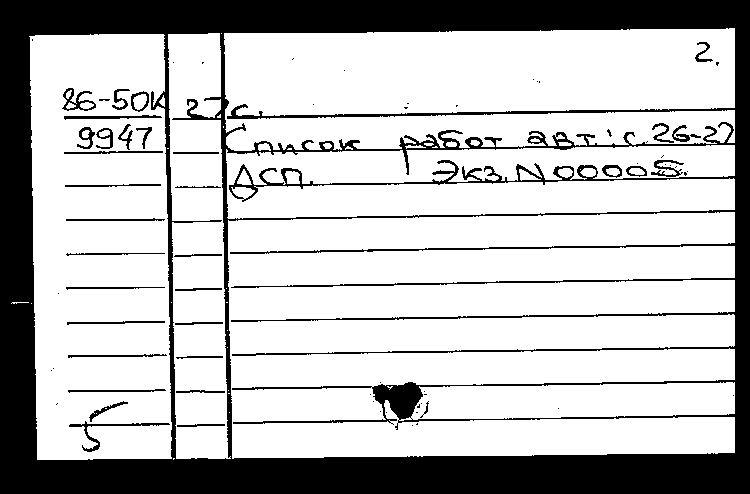 2.
86-50К 27с.
9947 Список работ авт.: с. 26-27
ДСП. Экз. N 00005.
5